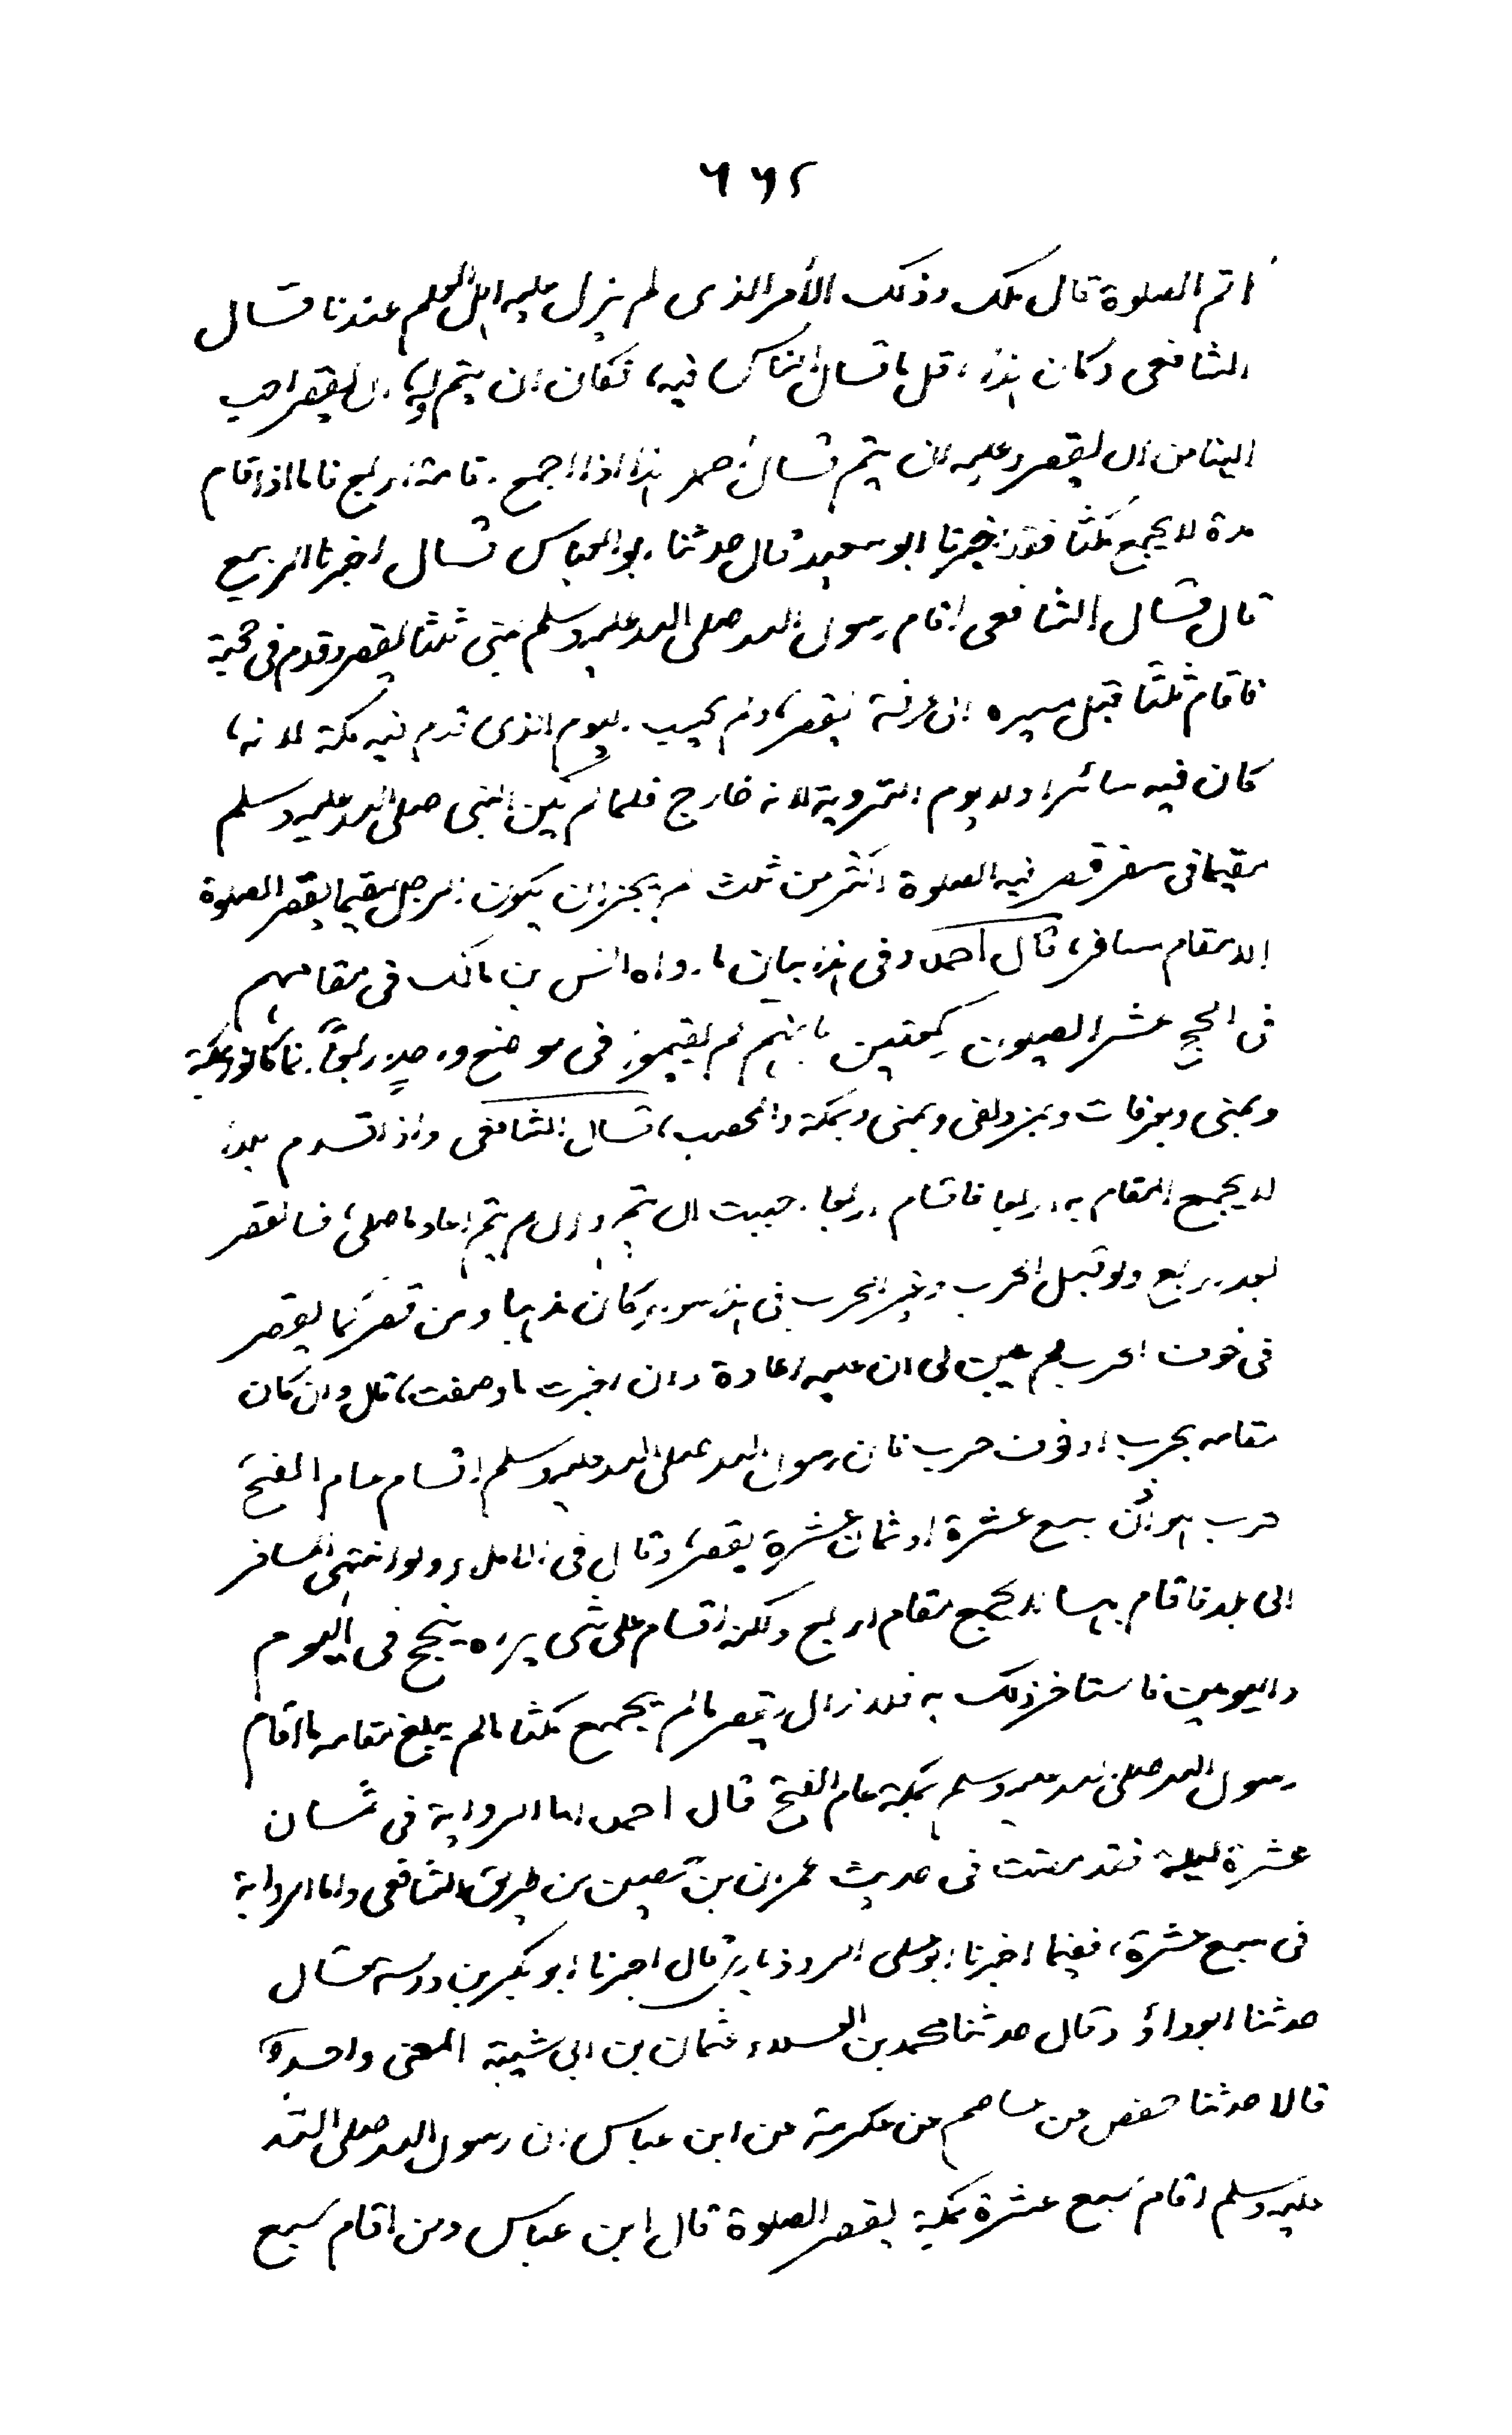 ٦٦٢
اتم الصلوة قال ملك وذلك الأمر الذى لم يزل عليه اهل العلم عندنا قال
الشافعى وكان هذا اقل ما قال الناس فيه، فكان ان يتم ان يقصر احب
الينا من ان يقصر وعليه ان يتم قال احمد هذا اذا اجمع اقامة اربع فاما اذا اقام
مدة لا يجمع مكثا فقد اخبرنا ابو سعيد قال حدثنا ابو العباس قال اخبرنا الربيع
قال قال الشافعى اقام رسول الله صلى الله عليه وسلم بمنى ثلثا يقصر وقدم فى حجته
فاقام ثلثا قبل مسيره الى عرفة يقصر، ولم يحسب اليوم الذى قدم فيه مكة لانه،
كان فيه سائرا ولا يوم التروية لانه خارج فلما لم يكن النبى صلى الله عليه وسلم
مقيما فى سفر قصر فيه الصلوة اكثر من ثلث لم يجز ان يكون الرجل مقيما يقصر الصلوة
الا مقام مسافر، قال احمد وفى هذا بيان ما رواه انس بن مالك فى مقامهم
فى الحج عشرا يصلون ركعتين بانهم لم يقيموا فى موضع واحد اربعاً انما كانوا بمكة
وبمنى وبعرفات وبمزدلفى وبمنى وبمكة والمحصب، قال الشافعى واذا قدم بلدا
لا يجمع المقام به اربعا فاقام اربعا احببت ان يتم وان لم يتم اعاد ما صلى، فا لقصر
بعد اربع ولو قيل الحرب وغير الحرب فى هذا سواء كان مذهبا ومن قصر كما يقصر
فى خوف الحرب لم يبين لى ان عليه اعادة وان اخترت ما وصفت، قال وان كان
مقامه بحرب او خوف حرب فان رسول الله صلى الله عليه وسلم اقام عام الفتح
حرب هوازن سبع عشرة او ثمان عشرة يقصر، وقال فى الاملاء ولو انتهى المسافر
الى بلد فاقام بها لا يجمع مقام اربع ولكنه اقام على شى يراه ينجح فى اليوم
واليومين فاستاخر ذلك به فلا زال يقصر ما لم يجمع مكثا مالم يبلغ مقامه ما اقام
رسول الله صلى الله عليه وسلم بمكة عام الفتح قال احمد اما الرواية فى ثمان
عشرة ليلة فقد مضت فى حديث عمران بن حصين من طريق الشافعى واما الرواية
فى سبع عشرة، ففيما اخبرنا ابو على الروذبارى قال اخبرنا ابو بكر بن درسة قال
حدثنا ابوداؤد قال حدثنا محمد بن العلاء عثمان بن ابى شيبة المعنى واحد
قالا حدثنا حفص عن عاصم عن عكرمة عن ابن عباس ان رسول الله صلى الله
عليه وسلم اقام سبع عشرة بمكة يقصر الصلوة قال ابن عباس ومن اقام سبع